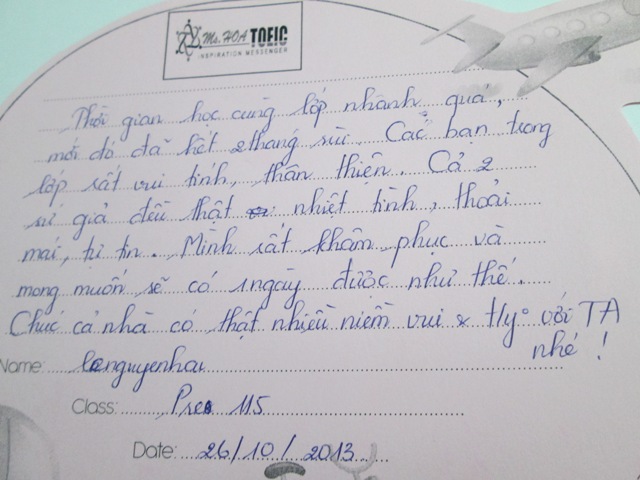 Ms. HOA TOEIC
INSPIRATION MESSENGER
Thời gian học cùng lớp nhanh quá,
mới đó đã hết 2 tháng rùi. Các bạn trong
lớp rất vui tính, thân thiện. Cả 2
sứ giả đều thật nhiệt tình, thoải
mái, tự tin. Mình rất khâm phục và
mong muốn sẽ có 1 ngày được như thế.
Chúc cả nhà có thật nhiều niềm vui & t/y với TA
nhé!
Name: lenguyenhai
Class: Pre 115
Date: 26/10/2013